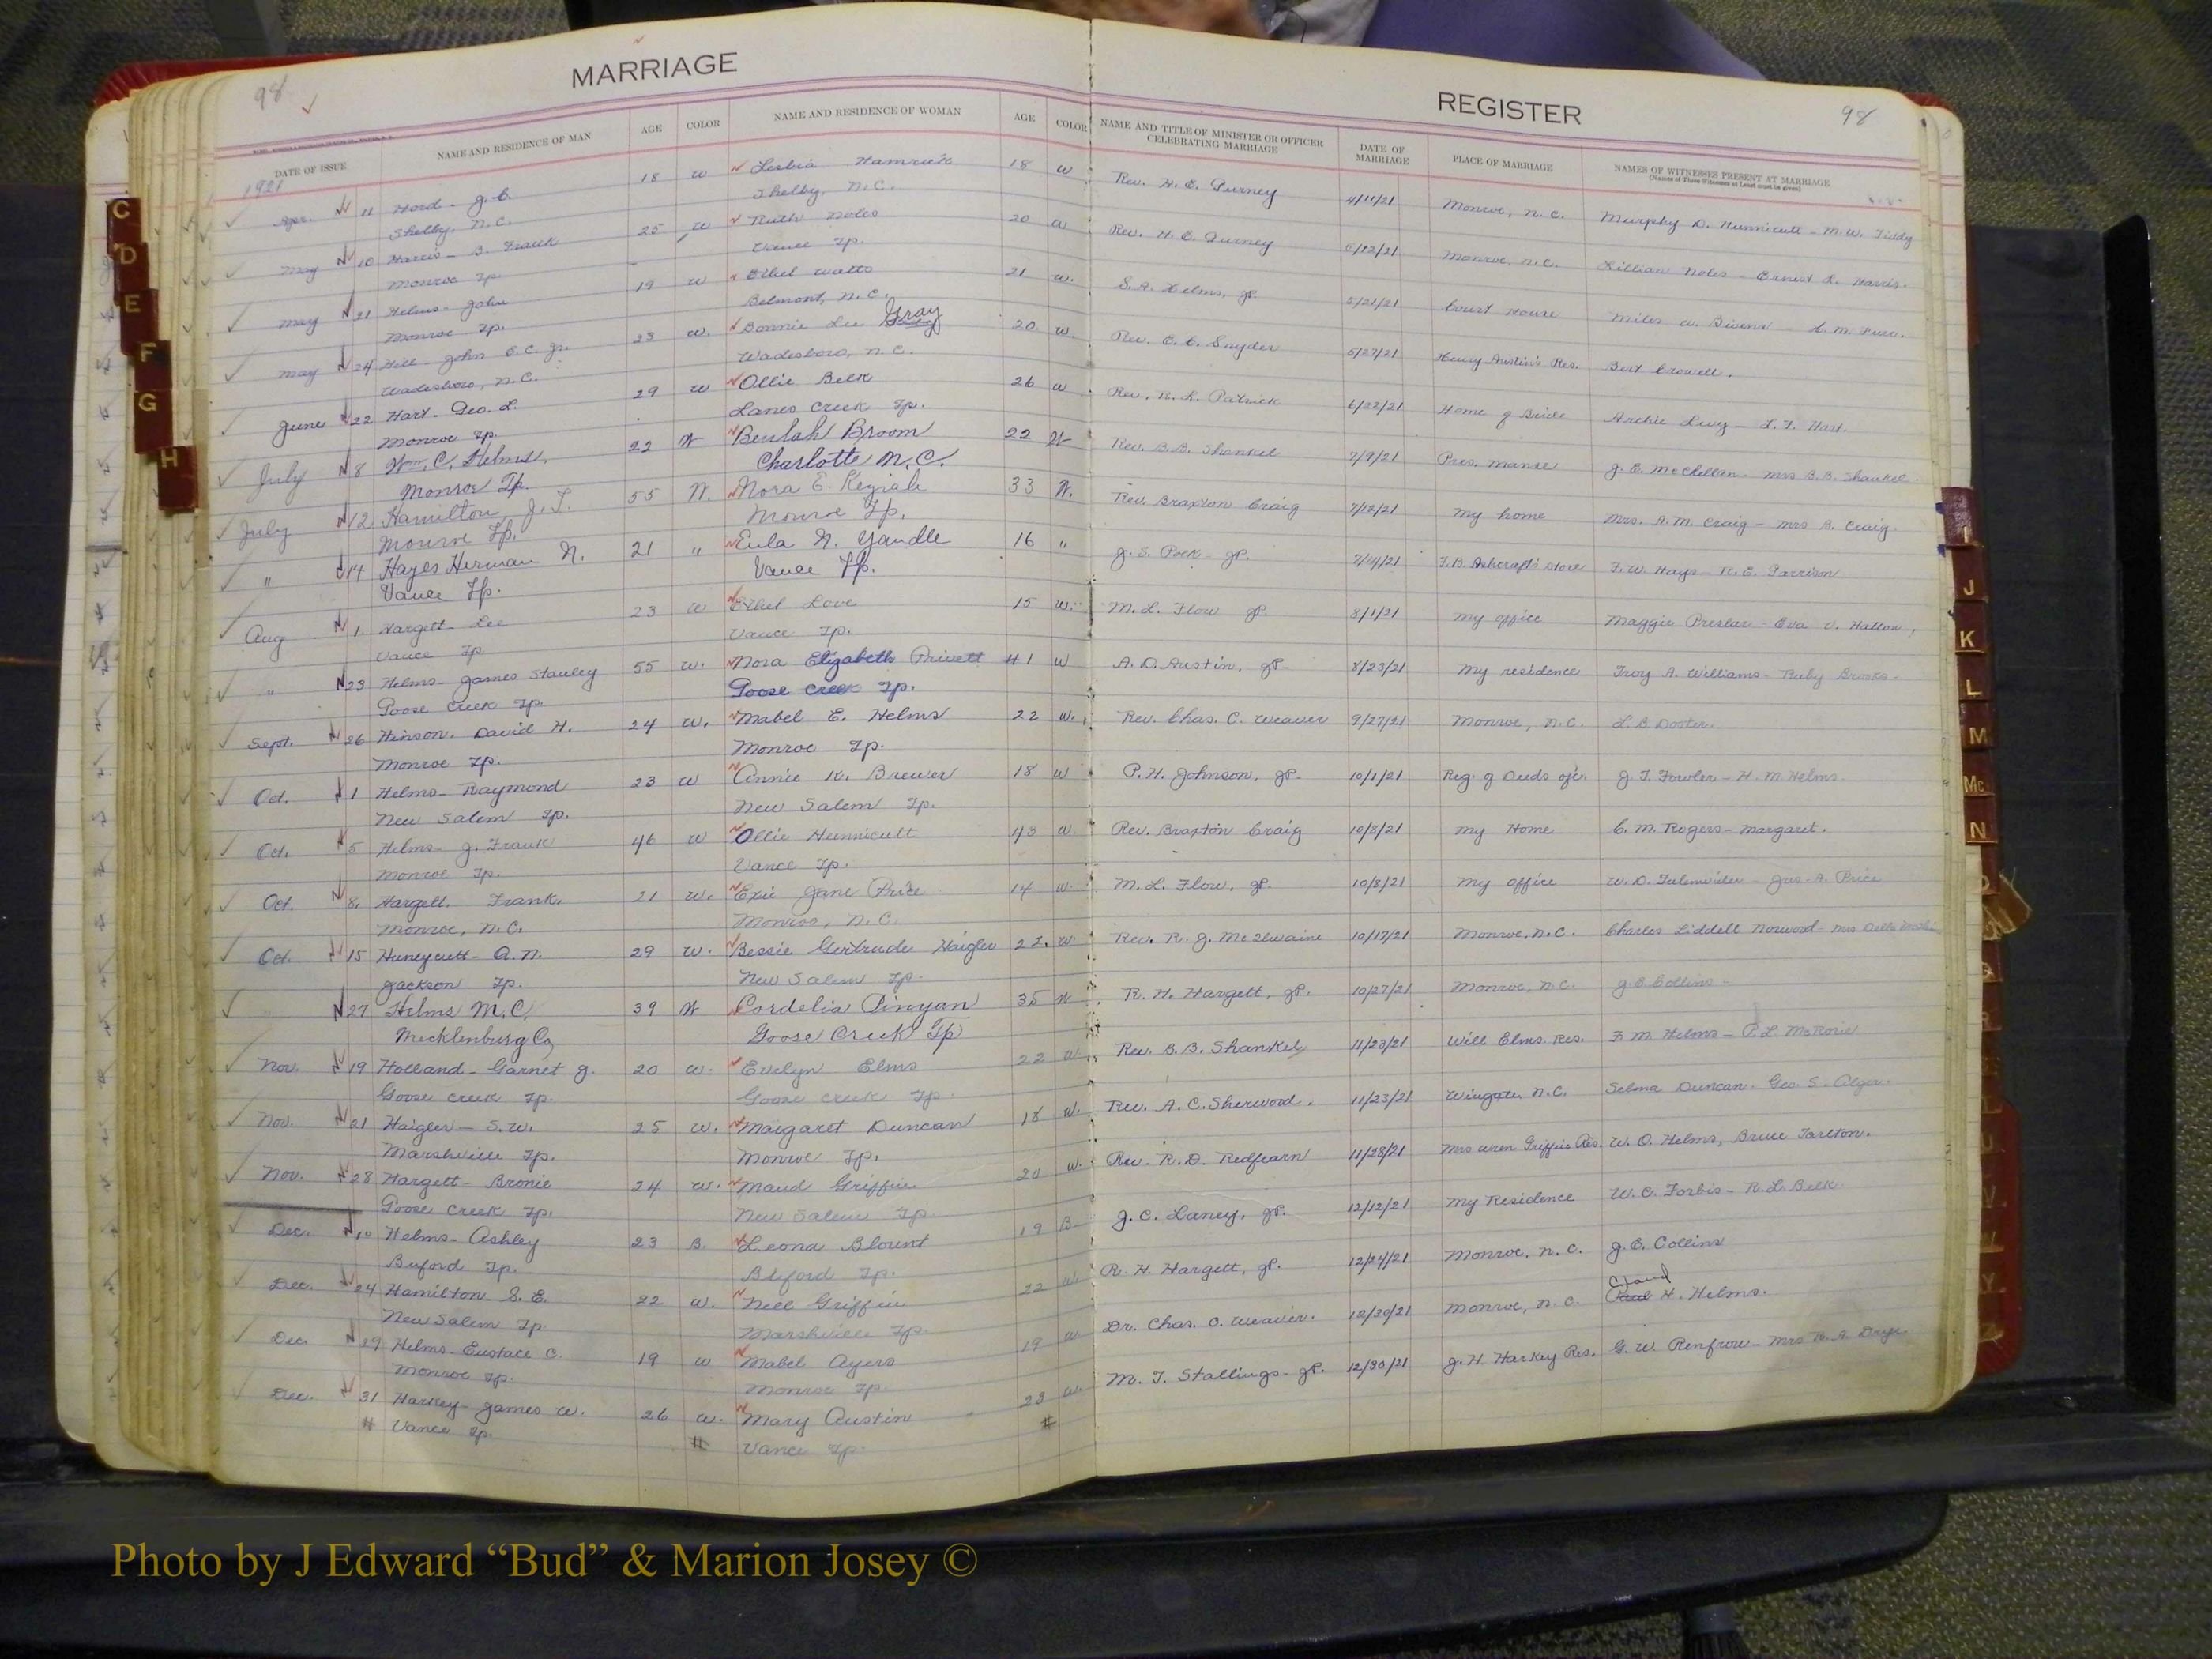 MARRIAGE
REGISTER
98
98
DATE OF ISSUE NAME AND RESIDENCE OF MAN AGE COLOR NAME AND RESIDENCE OF WOMAN AGE COLOR NAME AND TITLE OF MINISTER OR OFFICER CELEBRATING MARRIAGE DATE OF MARRIAGE PLACE OF MARRIAGE NAMES OF WITNESSES PRESENT AT MARRIAGE
(Names of Three Witnesses at Least must be given)
1921
Apr. 11 Hord - J. C. 18 W Lesbia Hamrick 18 W Rev. H. E. Gurney 4/11/21 Monroe, N.C. Murphy D. Hunnicutt - M.W. Tiddy
Shelby, N.C. Shelby, N.C.
May 10 Harris - B. Frank 25 W Ruth Noles 20 W Rev. H. E. Gurney 5/12/21 Monroe, N.C. Lillian Noles - Ernest L. Harris.
Monroe Tp. Vance Tp.
May 21 Helms - John 19 W Ethel Watts 21 W. S. A. Helms, JP. 5/21/21 Court House Miles W. Bivens
Monroe Tp. Belmont, N.C.
May 24 Hill - John E.C. Jr. 23 W. Bonnie Lee Gray 20. W. Rev. E. C. Snyder 5/27/21 Henry Austin's Res. Bert Crowell.
Wadesboro, N.C. Wadesboro, N.C.
June 22 Hart - Geo. L. 29 W Ollie Belk 26 W Rev. R. L. Patrick 6/22/21 Home of Bride Archie Levy - L. F. Hart.
Monroe Tp. Lanes Creek Tp.
July 8 Wm. C. Helms, 22 W Beulah Broom 22 W Rev. B.B. Shankel 7/9/21 Pres. manse J. E. McClellan. Mrs B.B. Shankel.
Monroe Tp. Charlotte N.C.
July 12 Hamilton, J. T. 55 W. Nora E. Keziah 33 W. Rev. Braxton Craig 7/12/21 My home Mrs. A.M. Craig - Mrs B. Craig.
Monroe Tp. Monroe Tp.
" 14 Hayes Herman N. 21 " Eula N. Yandle 16 " J. S. Polk - JP. 7/14/21 T.B. Ashcraft's store F.W. Hays - R. E. Garrison
Vance Tp. Vance Tp.
Aug 1. Hargett - Lee 23 W Ethel Love 15 W. M. L. Flow JP. 8/1/21 My office Maggie Preslar - Eva V.
Vance Tp Vance Tp.
" 23 Helms - James Stanley 55 W. Nora Elizabeth Privett 41 W A. D. Austin, JP. 8/23/21 My residence Troy A. Williams - Ruby Brooks -
Goose Creek Tp. Goose Creek Tp.
Sept. 26 Hinson. David H. 24 W. Mabel E. Helms 22 W. Rev. Chas. C. Weaver 9/27/21 Monroe, N.C. L B Doster.
Monroe Tp. Monroe Tp.
Oct. 1 Helms - Raymond 23 W Annie K. Brewer 18 W P. H. Johnson, JP. 10/1/21 Reg. of Deeds ofc. J. T. Fowler - H. M. Helms.
New Salem Tp. New Salem Tp.
Oct. 5 Helms - J. Frank 46 W Ollie Hunnicutt 43 W Rev. Braxton Craig 10/8/21 My Home C. M. Rogers - Margaret.
Monroe Tp. Vance Tp.
Oct. 8. Hargett. Frank. 21 W. Exie Jane Price 14 W. M. L. Flow, JP. 10/8/21 My office W. D. Fulenwider - Jas. A. Price
Monroe, N.C. Monroe, N.C.
Oct. 15 Huneycutt - A. N. 29 W. Bessie Gertrude Haigler 27. W Rev. R. J. McIlwaine 10/17/21 Monroe, N.C. Charles Liddell Norwood - Mrs
Jackson Tp. New Salem Tp.
27 Helms M. C. 39 W Cordelia Pinyan 35 W R. H. Hargett, JP. 10/27/21 Monroe, N.C. J. E. Collins -
Mecklenburg Co, Goose Creek Tp
Nov. 19 Holland - Garnet J. 20 W. Evelyn Elms 22 W. Rev. B.B. Shankel, 11/23/21 Will Elms Res. F. M. Helms - P.L. McRorie
Goose Creek Tp. Goose Creek Tp.
Nov. 21 Haigler - S.W. 25 W. Margaret Duncan 18 W. Rev. A. C. Sherwood. 11/23/21 Wingate, N.C. Selma Duncan. Geo. S.
Marshville Tp. Monroe Tp.
Nov. 28 Hargett - Bronie 24 W. Maud Griffin 20 W. Rev. R.D. Redfearn 11/28/21 Mrs Wren Griffin Res. W. O. Helms, Bruce Tarlton.
Goose Creek Tp. New Salem Tp.
Dec. 10 Helms - Ashley 23 B. Leona Blount 19 B J. C. Laney, JP. 12/12/21 My Residence W. C. Forbis - R. L. Belk
Buford Tp. Buford Tp.
Dec. 24 Hamilton S. E. 22 W. Nell Griffin 22 W. R. H. Hargett, JP. 12/24/21 Monroe, N.C. J. E. Collins
New Salem Tp. Marshville Tp.
Dec. 29 Helms - Eustace C. 19 W Mabel Ayers 19 W Dr. Chas. C. Weaver. 12/30/21 Monroe, N.C. H. Helms.
Monroe Tp. Monroe Tp.
Dec. 31 Harkey - James W. 26 W. Mary Austin 23 W. M. T. Stallings - JP. 12/30/21 J. H. Harkey Res. G. W. Renfrow - Mrs
# Vance Tp. # Vance Tp. #
C
D
E
F
G
H
I
J
K
L
M
Mc
N
Photo by J Edward “Bud” & Marion Josey ©